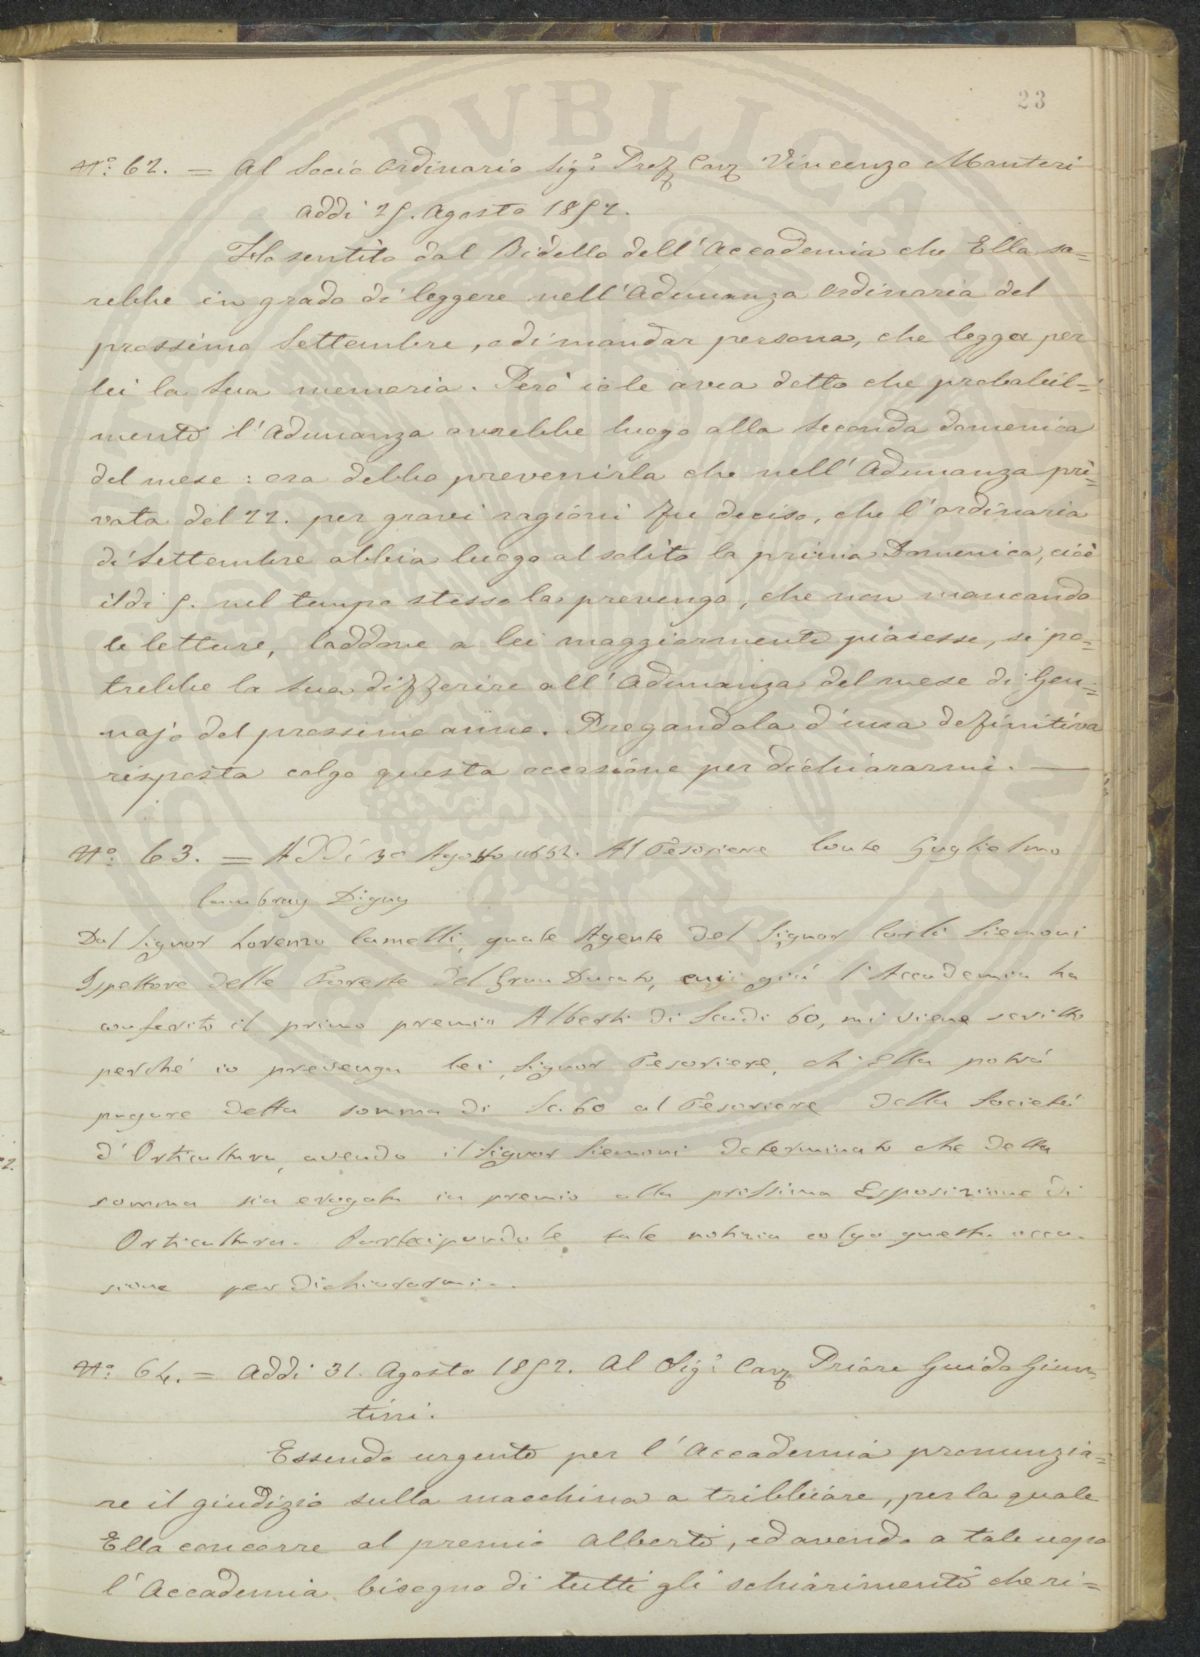 23
N.° 62. = Al Socio Ordinario Sig.r Prof. Cav. Vincenzo Manteri
Addi 25. Agosto 1852.
Ho sentito dal Bidello dell'Accademia che Ella sa=
rebbe in grado di leggere nell'Adunanza ordinaria del
prossimo Settembre, o di mandar persona, che legga per
lei la sua memoria. Però io le avea detto che probabil=
mente l'Adunanza avrebbe luogo alla seconda domenica
del mese: ora debbo prevenirla che nell'Adunanza pri=
vata del 22. per gravi ragioni fu deciso, che l'ordinaria
di Settembre abbia luogo al solito la prima Domenica, cioè
il di 5. nel tempo stesso la prevengo, che non mancando
le letture, laddove a lei maggiormente piacesse, si po=
trebbe la sua differire all'Adunanza del mese di Gen=
najo del prossimo anno. Pregandola d'una definitiva
risposta colgo questa occasione per dichiararmi. —
N.° 63. = Addì 30 Agosto 1852. Al Tesoriere Conte Guglielmo
Cambray Digny
Dal Signor Lorenzo Camelli, quale Agente del Signor Carlo Siemoni
Ispettore delle Foreste del Gran Ducato, cui già l'Accademia ha
conferito il primo premio Alberti di Scudi 60, mi viene scritto
perché io prevenga lei, Signor Tesoriere, ch'Ella potrà
pagare detta somma di Sc. 60 al Tesoriere della Società
d'Orticultura, avendo il Signor Siemoni determinato che detta
somma sia erogata in premio alla prossima Esposizione di
Orticultura. Partecipandole tale notizia colgo questa occa-
sione per dichiararmi..
N.° 64. = Addi 31. Agosto 1852. Al Sig.r Cav. Priore Guido Giun
tini.
Essendo urgente per l'Accademia pronunzia=
re il giudizio sulla macchina a tribbiare, per la quale
Ella concorre al premio Alberti, ed avendo a tale uopo
l'Accademia bisogno di tutti gli schiarimenti che ri=
PVBLICA